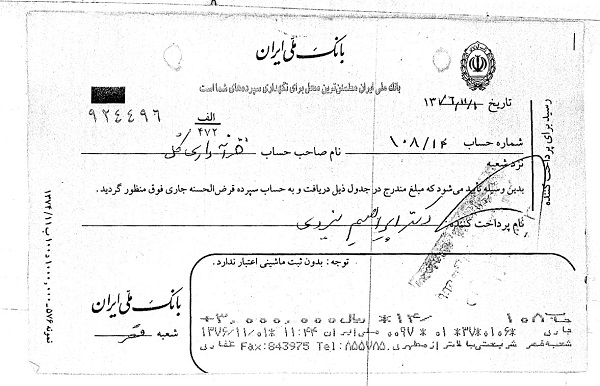 بانک ملّی ایران
بانک ملی ایران مطمئن‌ترین محل برای نگهداری سپرده‌های شما است
تاریخ ۱۳۷۶/۱۱/۱
۹۲۴۴۹۶
الف
۴۷۲
شماره حساب ۱۰۸/۱۴ نام صاحب حساب
نزد شعبه
بدین وسیله تأیید می‌شود که مبلغ مندرج در جدول ذیل دریافت و به حساب سپرده قرض‌الحسنه جاری فوق منظور گردید.
نام پرداخت کننده: دکتر ابراهیم یزدی
رسید برای پرداخت کننده
توجه: بدون ثبت ماشینی اعتبار ندارد.
بانک ملّی ایران
شعبه قصر
۱۰۸ ۱۴/* ریال ۳,۰۰۰,۰۰۰*
جاری ۰۱۰۶*۳۷* ۰۱ ۰۰۹۷ ملی ایران ۱۱:۴۴ ۱۳۷۶/۱۱/۰۱
شعبه قصر شریعتی بالاتر از مطهری Tel:۸۵۵۷۸۵ Fax:843975 غفاری